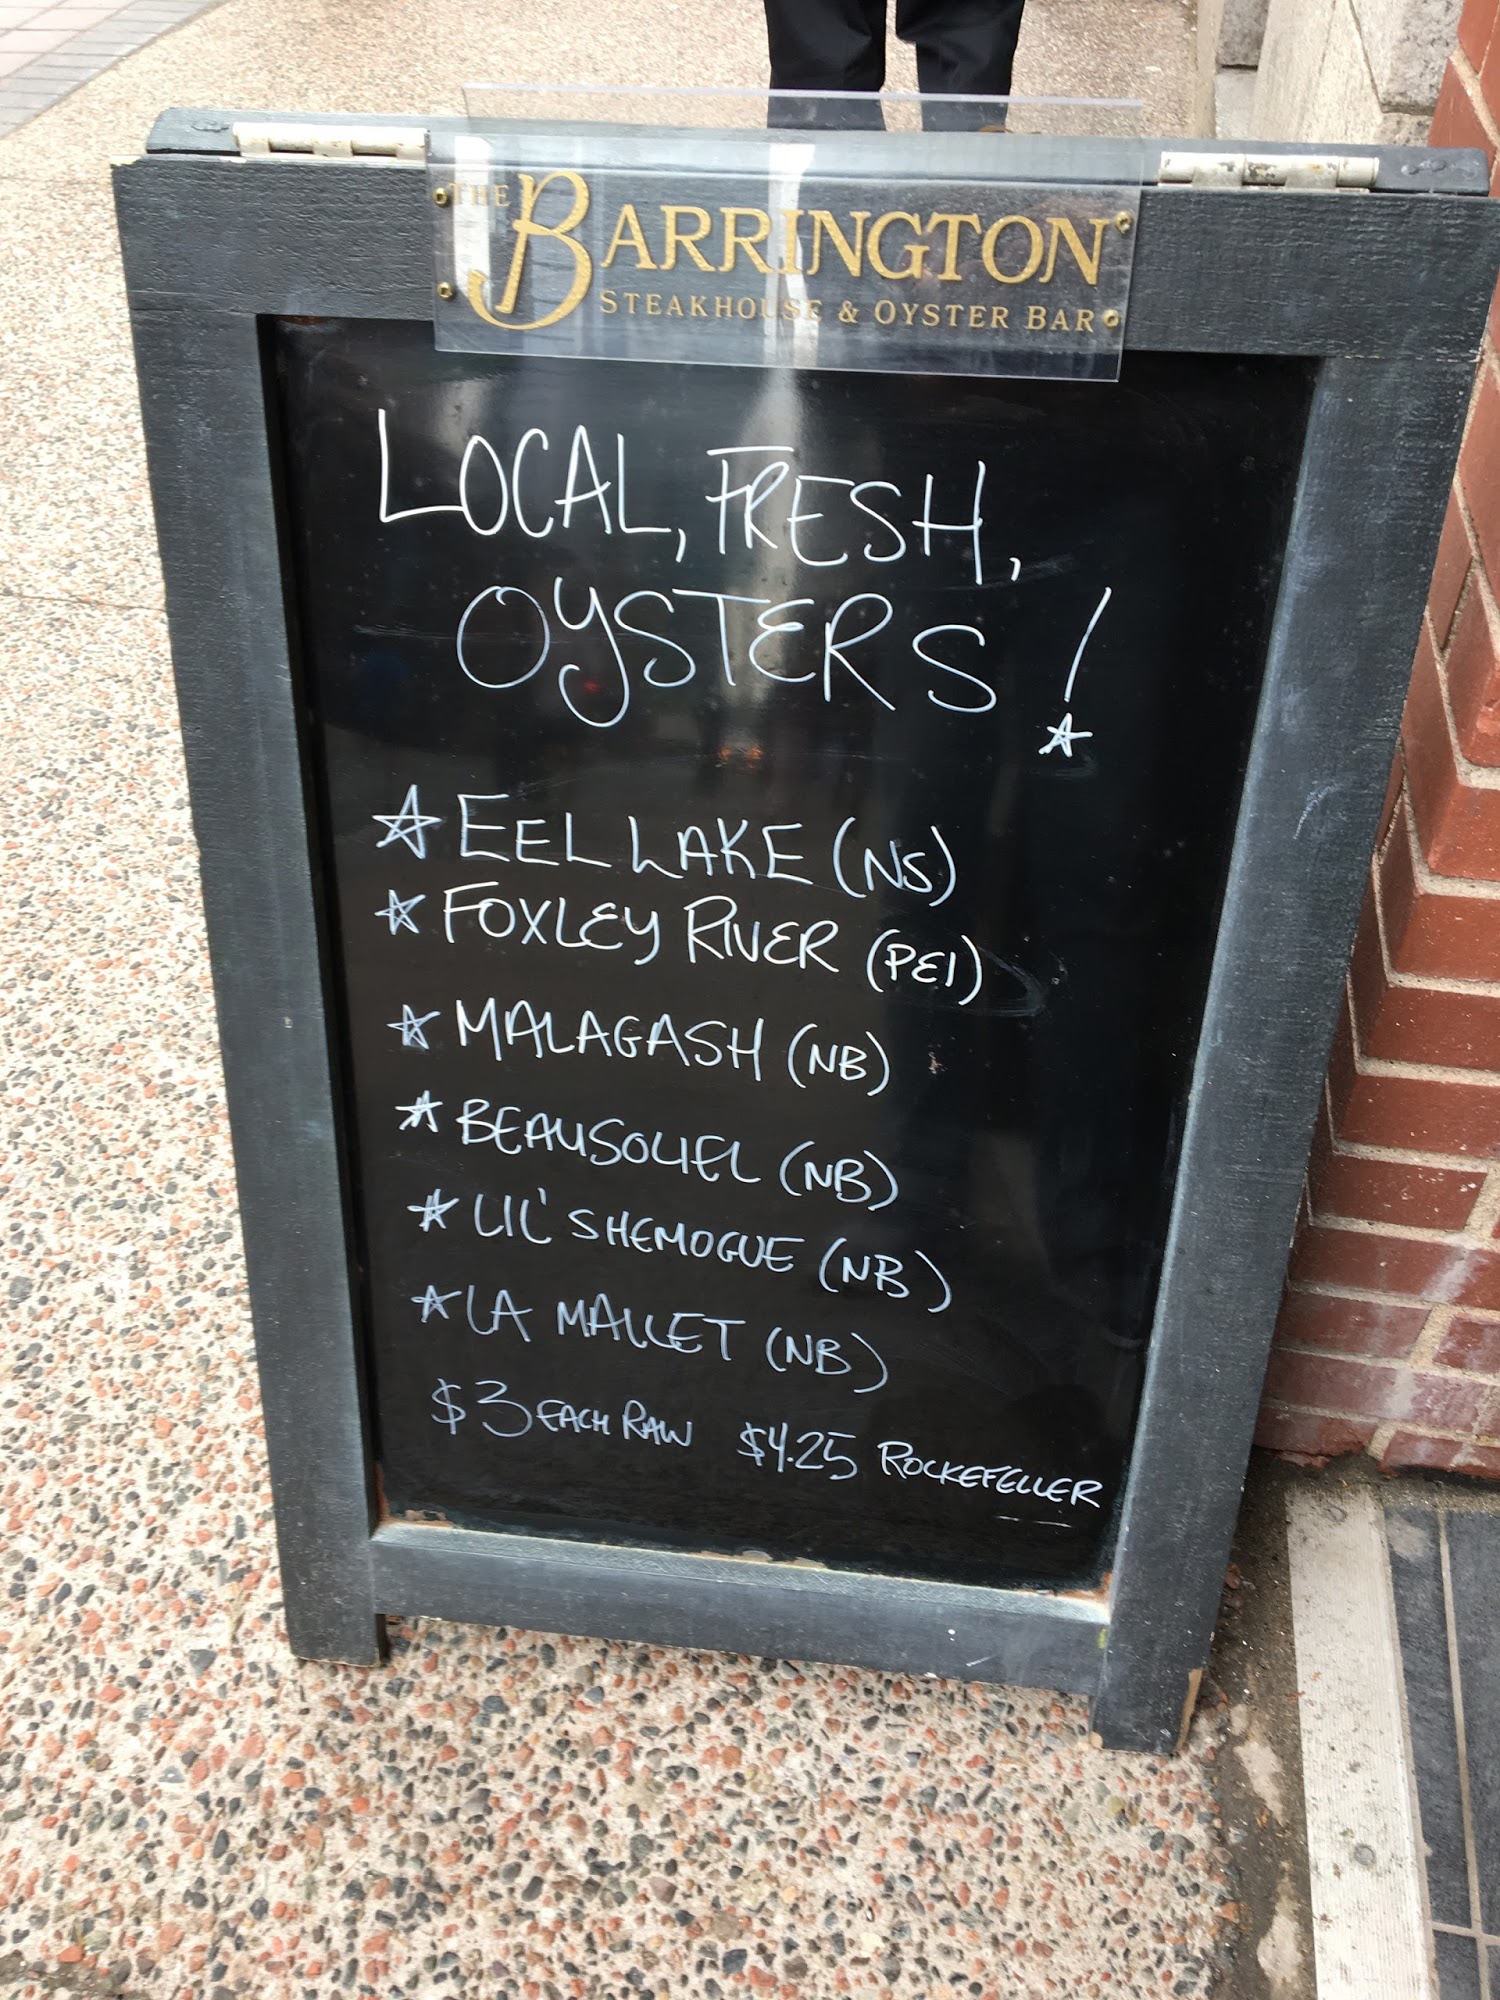 THE BARRINGTON
STEAKHOUSE & OYSTER BAR
LOCAL, FRESH,
OYSTERS!
☆ EEL LAKE (NS)
☆ FOXLEY RIVER (PEI)
☆ MALAGASH (NB)
☆ BEAUSOLIEL (NB)
☆ LIL' SHEMOGUE (NB)
☆ LA MALLET (NB)
$3 EACH RAW $4.25 ROCKEFELLER